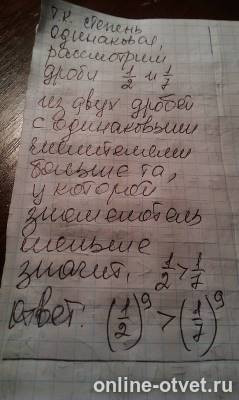 т.к. степень
одинаковая,
рассмотрим
дроби 1/2 и 1/7
из двух дробей
с одинаковыми
числителями
больше та,
у которой
знаменатель
меньше
значит, 1/2 > 1/7
ответ: (1/2)^9 > (1/7)^9
online-otvet.ru